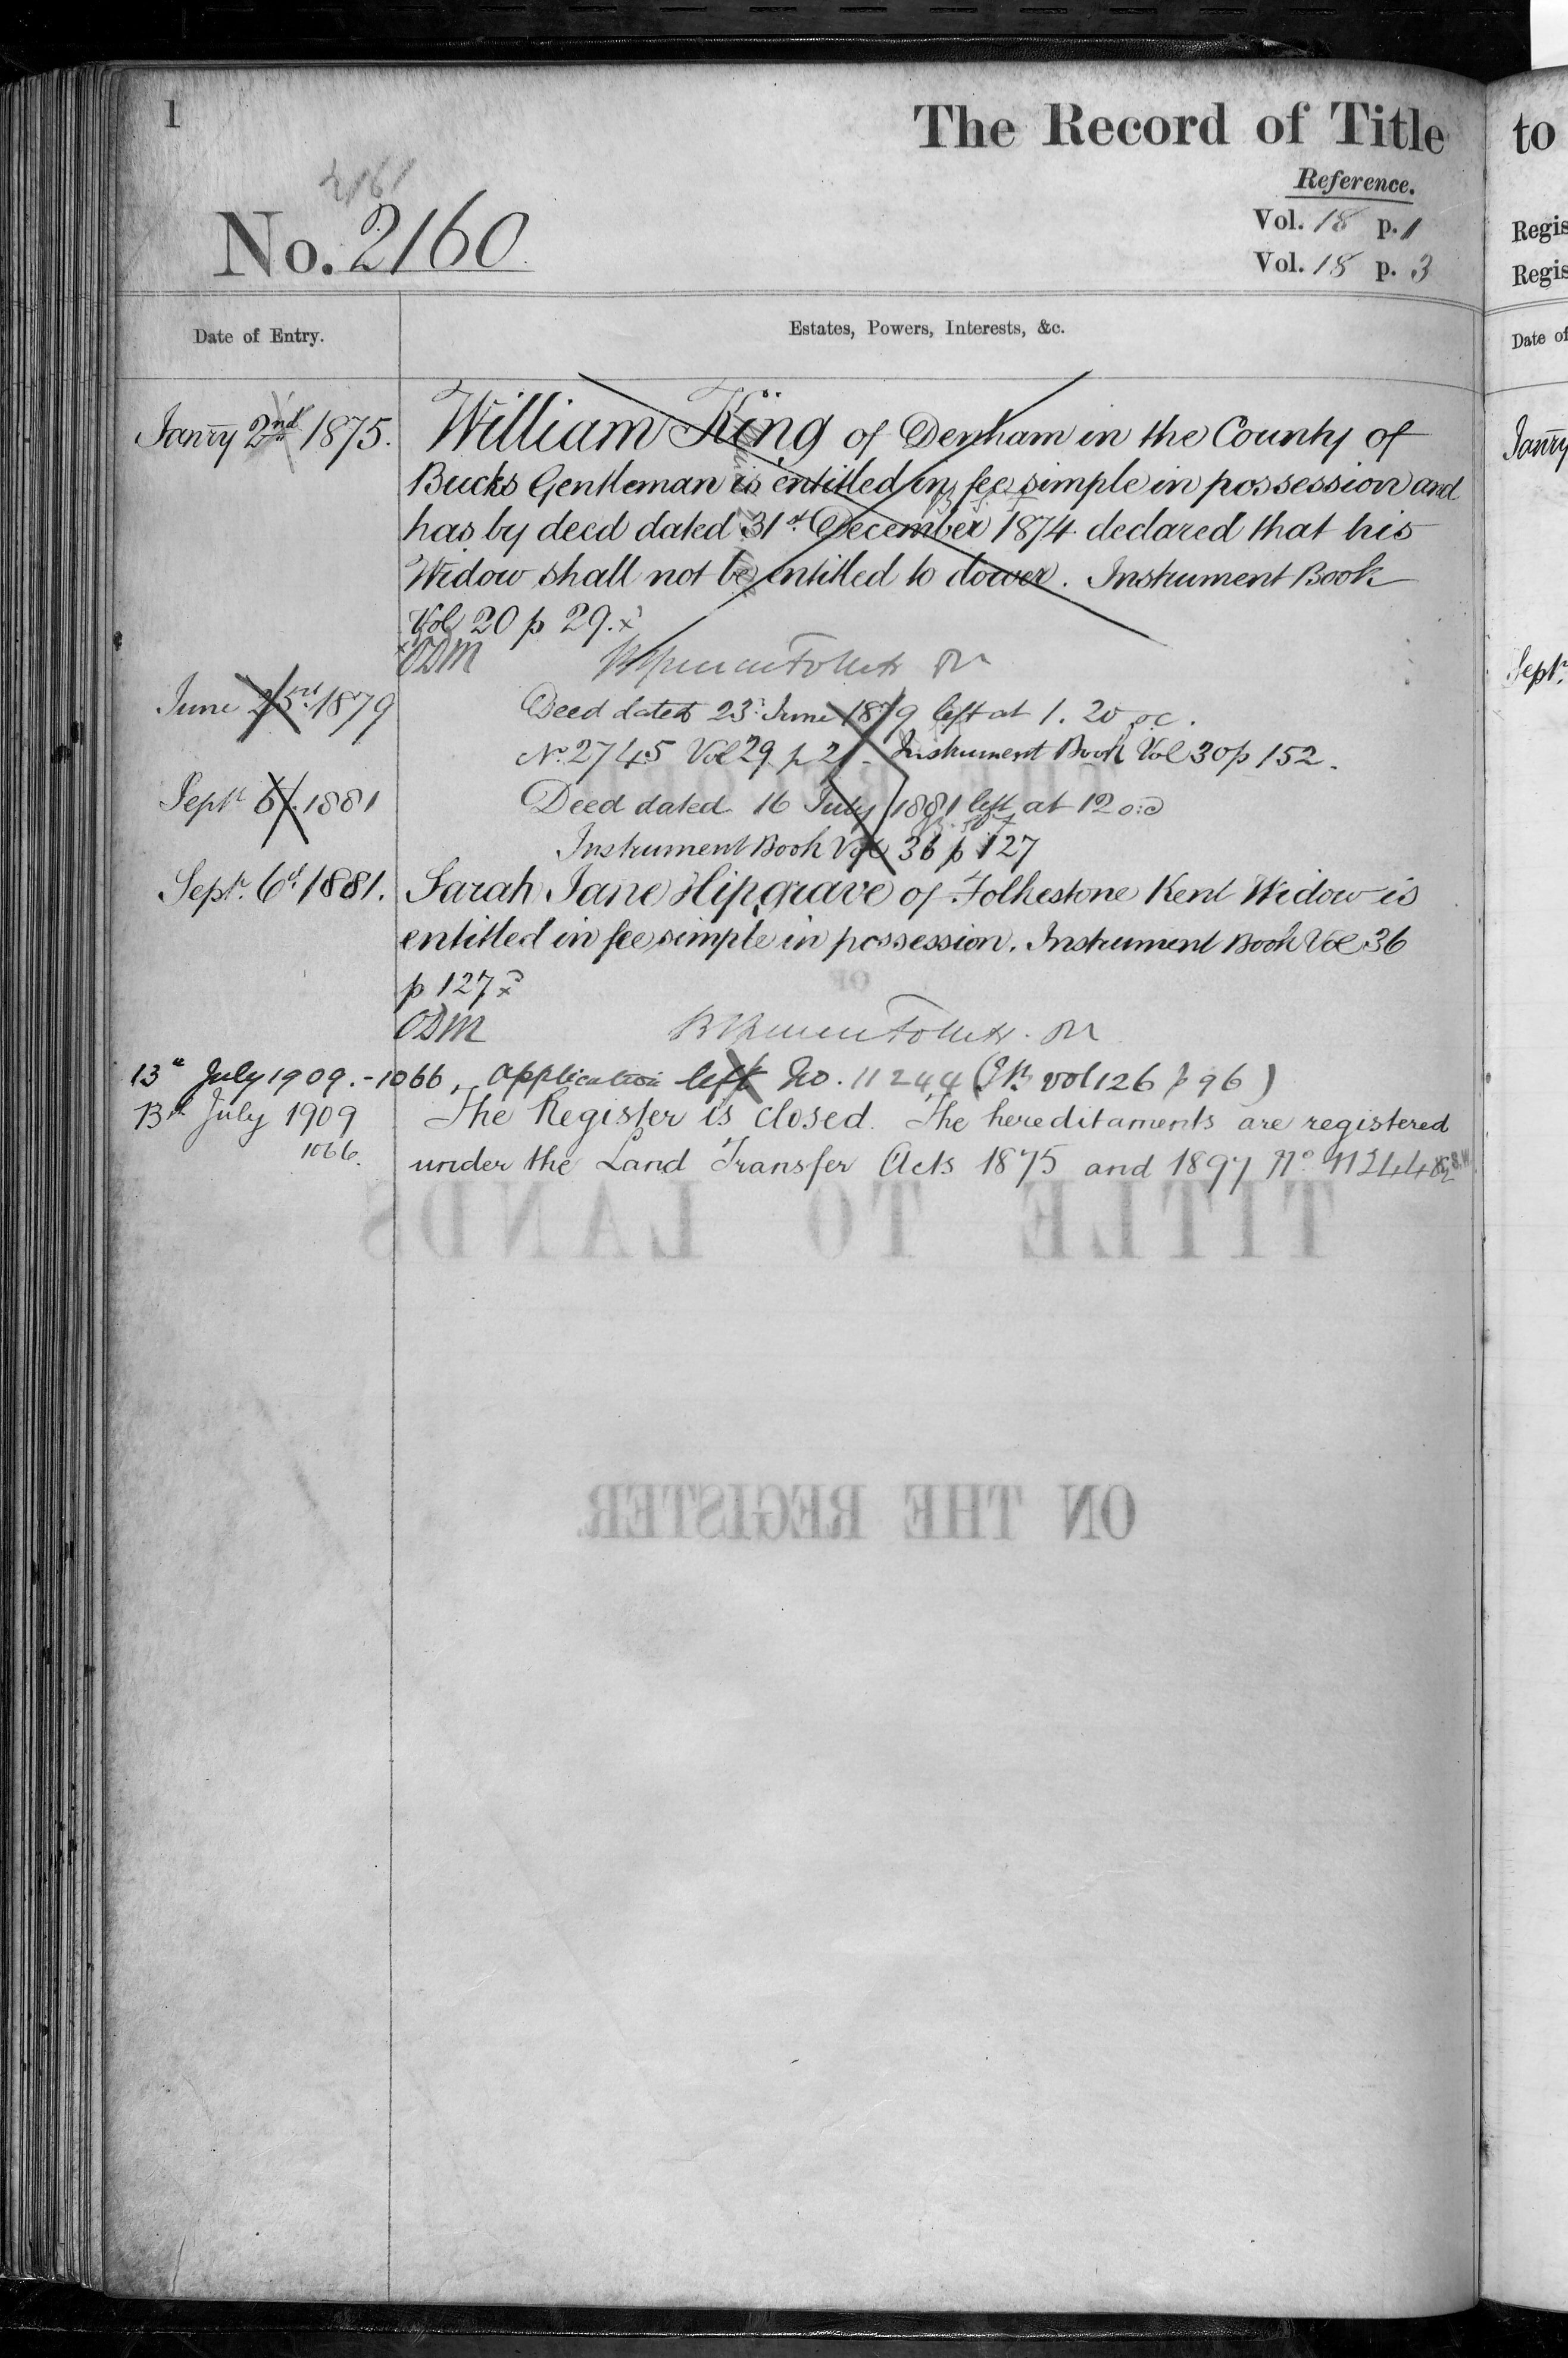 1
The Record of Title
Reference.
No. 2160
Vol. 18 p. 1
Vol. 18 p. 3
Date of Entry.
Estates, Powers, Interests, &c.
Janry 2nd 1875.
William King of Denham in the County of
Bucks Gentleman is entitled in fee simple in possession and
has by deed dated 31st December 1874 declared that his
Widow shall not be entitled to dower. Instrument Book
Vol 20 p 29.x
x ODM
June 23rd 1879
Deed dated 23rd June 1879 left at 1.20 oc.
No. 2745 Vol 29 p 21. Instrument Book Vol 30 p 152.
Septr 6th 1881
Deed dated 16 July 1881 left at 12 o:c
Instrument Book Vol 36 p 127
Septr. 6th 1881.
Sarah Jane Hipgrave of Folkestone Kent Widow is
entitled in fee simple in possession. Instrument Book Vol 36
p 127 x
ODM
13th July 1909. - 1066, application left No. 11244 (vol 126 p 96)
13th July 1909
1066.
The Register is closed. The hereditaments are registered
under the Land Transfer Acts 1875 and 1897 No
TITLE TO LANDS
ON THE REGISTER.
to
Regis
Regis
Date of
Janry
Septr.